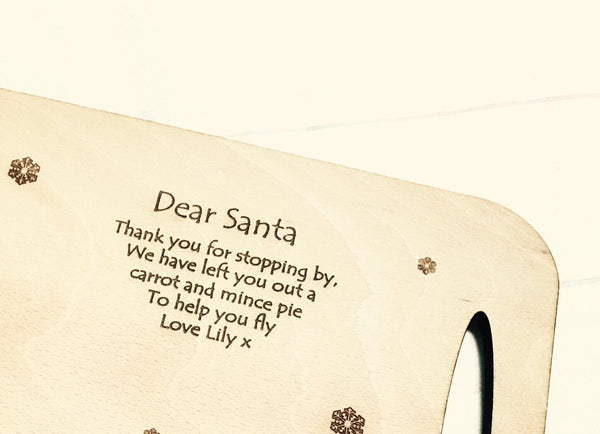 Dear Santa
Thank you for stopping by,
We have left you out a
carrot and mince pie
To help you fly
Love Lily x